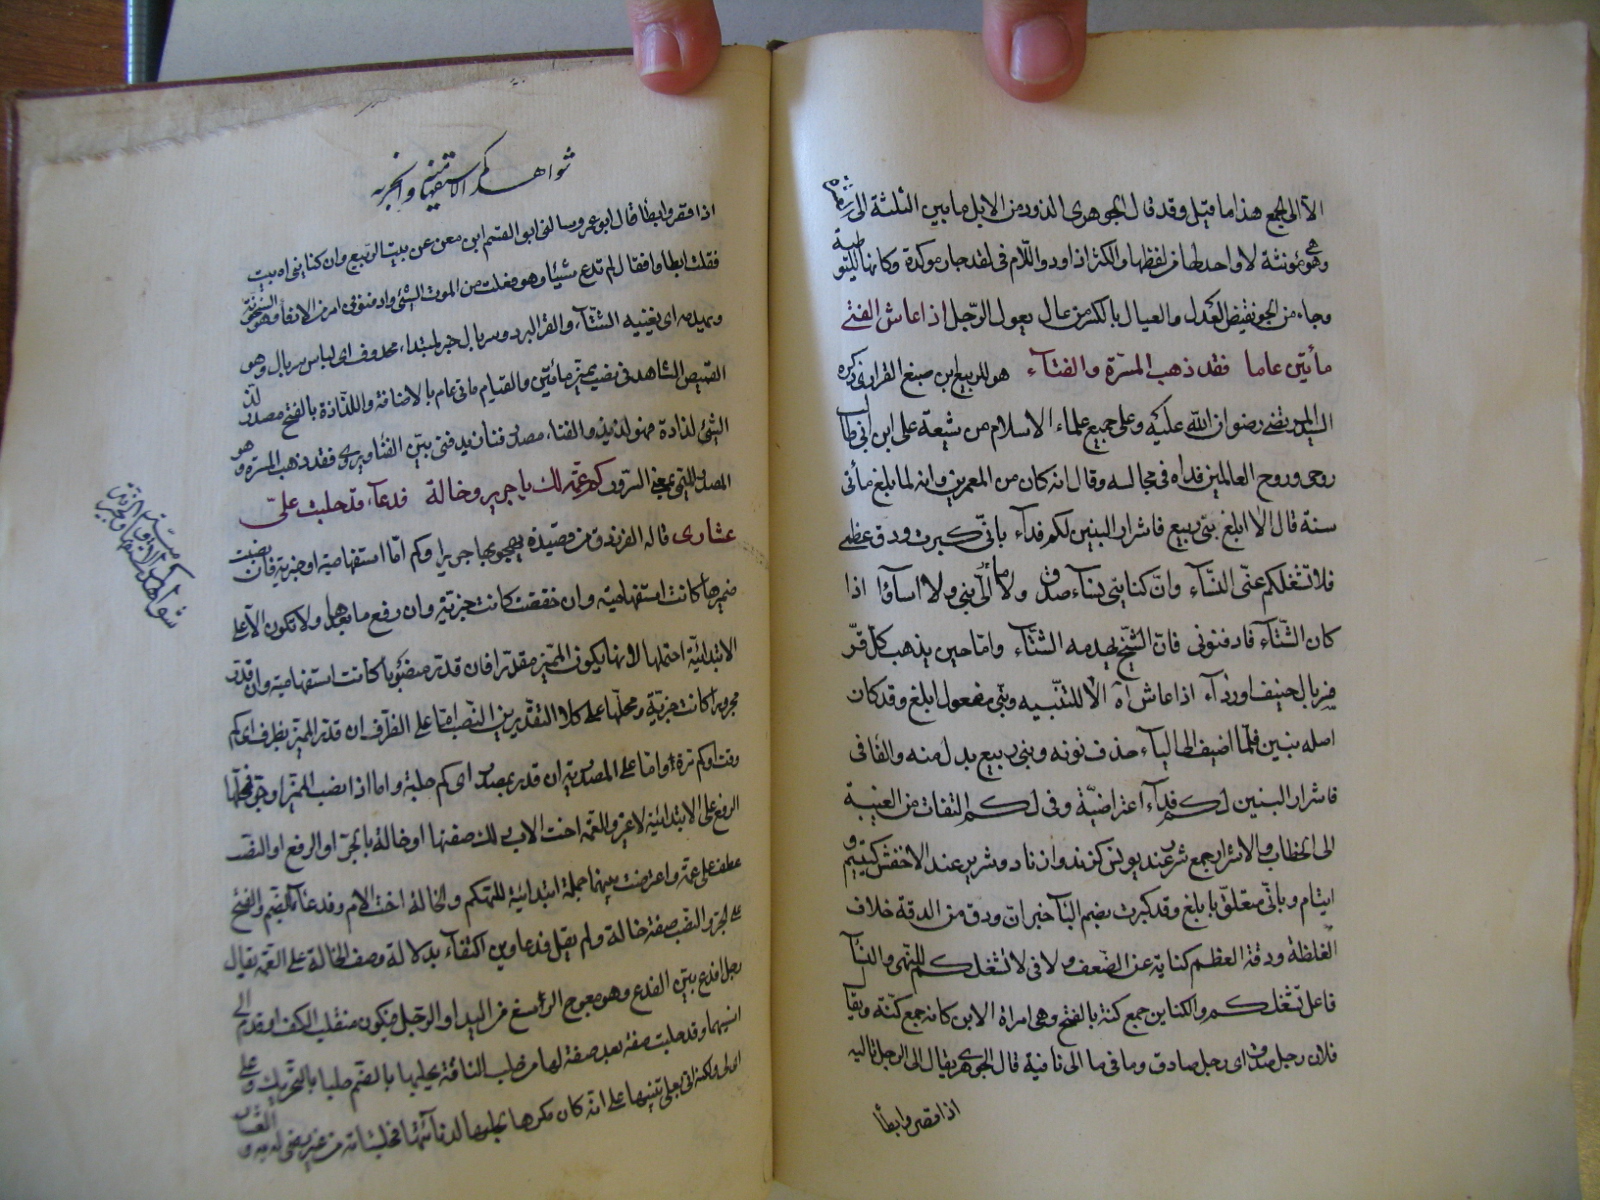 الا الى الجمع هذا ما قيل وقد قال الجوهرى الذود من الابل ما بين الثلثة الى العشرة
وهى مؤنثة لا واحد لها من لفظها والكثر اذواد واللام فى لقد جار موكدة وكانها
وجاء من الجور نقيض العدل والعيال بالكسر من عال يعول الرجل اذا عاش الفتى
مأتين عاما فقد ذهب المسرة والفتآء هو للربيع بن ضبع الفزارى ذكره
السيد المرتضى رضوان الله عليه وعلى جميع علماء الاسلام من شيعة على ابن ابى طالب
روحى وروح العالمين فداه فى مجالسه وقال انه كان من المعمرين وانه لما بلغ مأتى
سنة قال الا ابلغ بنى ربيع فاشرار البنين لكم فدآء بانى كبرت ودق عظمى
فلا تشغلكم عنى النسآء وان كناينى لنسآء صدق وما الى بنى ولا اسآؤا اذا
كان الشتآء فادفئونى فان الشيخ يهدمه الشتآء واما حين يذهب كل قر
فسربال خفيف اورداء اذا عاش اه الا للتنبيه وبنى مفعول ابلغ وقد كان
اصله بنين فلما اضيف الى الياء حذف نونه وبنى ربيع بدل منه والفا فى
فاشرار البنين لكم فدآء اعتراضية وفى لكم التفات من الغيبة
الى الخطاب والاشرار جمع شر عند يونس كزند وازناد وشرير عند الاخفش كيتيم و
ايتام وبانى متعلق بابلغ وقد كبرت بضم البآ خبر ان ودق من الدقة خلاف
الغلظة ودقة العظم كناية عن الضعف ولا فى لا تشغلكم للنهى والنسآ
فاعل تشغلكم والكناين جمع كنة بالفتح وهى امراة الابن كانه جمع كنينة ويقا
فلان رجل صدق اى رجل صادق وما فى ما الى نافية قال الجوهرى يقال الى الرجل تالية
اذا قصر وابطأ
شواهد كم الاستفهامية والخبرية
اذا قصر وابطأ قال ابو عمرو وسالنى ابو القسم ابن معن عن بيت الربيع وان كناينى اه بيت
فقلت ابطاوا فقال لم تدع شيئا وهو مغلت من الموت الشئ وادفئونى امر من الادفأ وهو السخونة
ويهدمه اى يفنيه الشتآء والقر البرد وسربال خبر لمبتداء محذوف اى لباس سربال وهو
القميص الشاهد فى نصب تميز مأتين والقيام مائى عام بالاضافة واللذاذة بالفتح مصدر لذ
الشئ لذاذة فهو لذيذ والفتاء مصدر فتآن يد فتى بين الفتا ويروى فقد ذهب المسرة وهو
المصدر الميمى بمعنى السرور كم عمة لك يا جرير وخالة فدعآء قد حلبت على
عشارى قاله الفرزدق من قصيدة يهجو بها جريرا وكم اما استفهامية او خبرية فان نصبت
مميزها كانت استفهامية وان خفضت كانت خبرية وان رفع ما بعدها ولا تكون الا على
الابتدائية احتملها لانها يكون المميز مقدرا فان قدرته منصوبا كانت استفهامية وان قدرته
مجرورا كانت خبرية ومحلها على كلا التقديرين النصب اما على الظرف ان قدر المميز بظرف اى كم
وقت او كم مرة واما على المصدرية ان قدر بمصدر اى كم حلبة واما اذا نصب المميز او جر فمحلها
الرفع على الابتدائية لا غير والعمة اخت الاب لك صفتها او خالة بالجر او الرفع او النصب
عطف على عمة واعترضت بينهما جملة ابتدائية للتهكم والخالة اخت الام وفدعآء بالضم والفتح
على الجر والنصب صفة خالة ولم يقل فدعاوين اكتفآء بدلالة وصف الخالة على العمة يقال
رجل افدع بين الفدع وهو معوج الرسغ من اليد او الرجل فيكون منقلب الكف او القدم الى
انسيهما وقد حلبت صفة بعد صفة لها من حلب الناقة يحلبها بالضم حلبا بالتحريك وعلى
شواهد كم الاستفهامية والخبرية